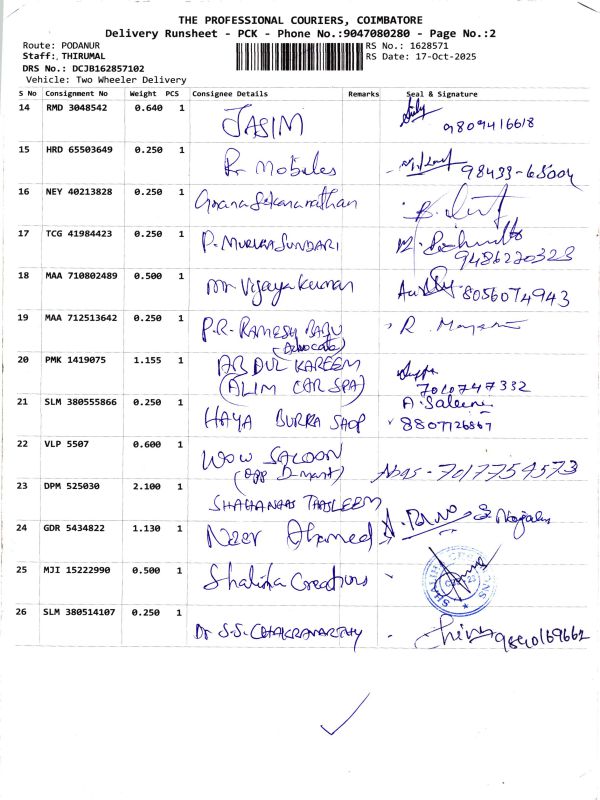 THE PROFESSIONAL COURIERS, COIMBATORE
Delivery Runsheet - PCK - Phone No.:9047080280 - Page No.:2
Route: PODANUR RS No.: 1628571
Staff: THIRUMAL RS Date: 17-Oct-2025
DRS No.: DCJB162857102
Vehicle: Two Wheeler Delivery
S No Consignment No Weight PCS Consignee Details Remarks Seal & Signature
14 RMD 3048542 0.640 1 JASIM 9809416618
15 HRD 65503649 0.250 1 R. Mobiles 98433-65004
16 NEY 40213828 0.250 1 Gnana Sekaranathan
17 TCG 41984423 0.250 1 P. MURUGASUNDARI
9486220323
18 MAA 710802489 0.500 1 Mr Vijayakumar 8056074943
19 MAA 712513642 0.250 1 P.R. RAMESH BABU R.
(Advocate)
20 PMK 1419075 1.155 1 ABDUL KAREEM
(ALIM CAR SPA) 7010747332
21 SLM 380555866 0.250 1 HAYA BURKA SHOP A. Saleem
8807726867
22 VLP 5507 0.600 1 WOW SALOON
(opp D-mart) Abas - 7017754573
23 DPM 525030 2.100 1 SHAHANAAS TAASLEEM
24 GDR 5434822 1.130 1 Ahamed
25 MJI 15222990 0.500 1 Shalika Creations
26 SLM 380514107 0.250 1 Dr S.S. CHAKRAVARTHY 9840169662